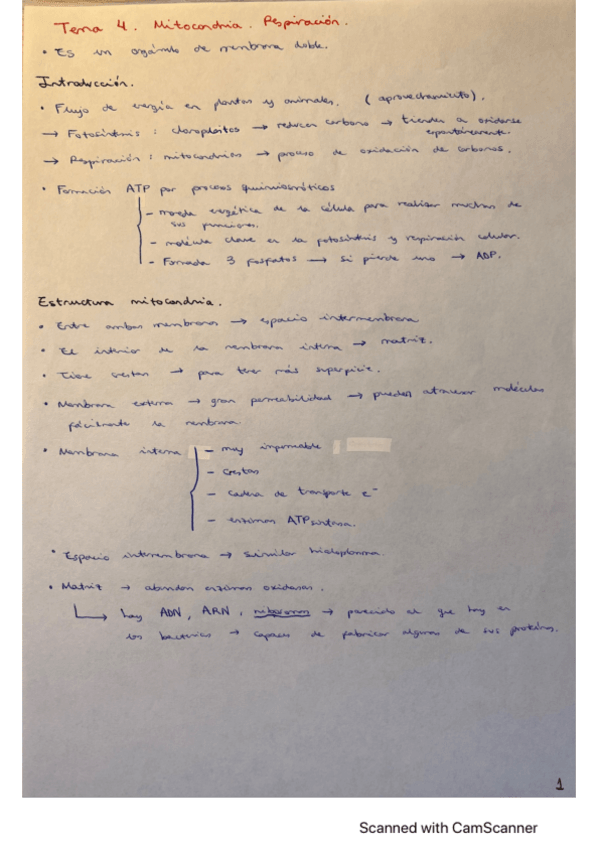 Tema 4. Mitocondria. Respiración.
• Es un orgánulo de membrana doble.
Introducción.
• Flujo de energía en plantas y animales. (aprovechamiento).
→ Fotosíntesis : cloroplastos → reducen carbono → tienden a oxidarse
espontáneamente.
→ Respiración : mitocondrias → proceso de oxidación de carbonos.
• Formación ATP por procesos quimiosmóticos
– moneda energética de la célula para realizar muchas de
sus funciones.
– molécula clave en la fotosíntesis y respiración celular.
– Formada 3 fosfatos → si pierde uno → ADP.
Estructura mitocondria.
• Entre ambas membranas → espacio intermembrana
• El interior de la membrana interna → matriz.
• Tiene crestas → para tener más superficie.
• Membrana externa → gran permeabilidad → pueden atravesar moléculas
fácilmente la membrana.
• Membrana interna – muy impermeable
– crestas
– cadena de transporte e⁻
– enzimas ATPsintasa.
• Espacio intermembrana → similar hialoplasma.
• Matriz → abundan enzimas oxidasas.
↳ hay ADN, ARN, ribosomas → parecido al que hay en
las bacterias → capaces de fabricar algunas de sus proteínas.
1
Scanned with CamScanner